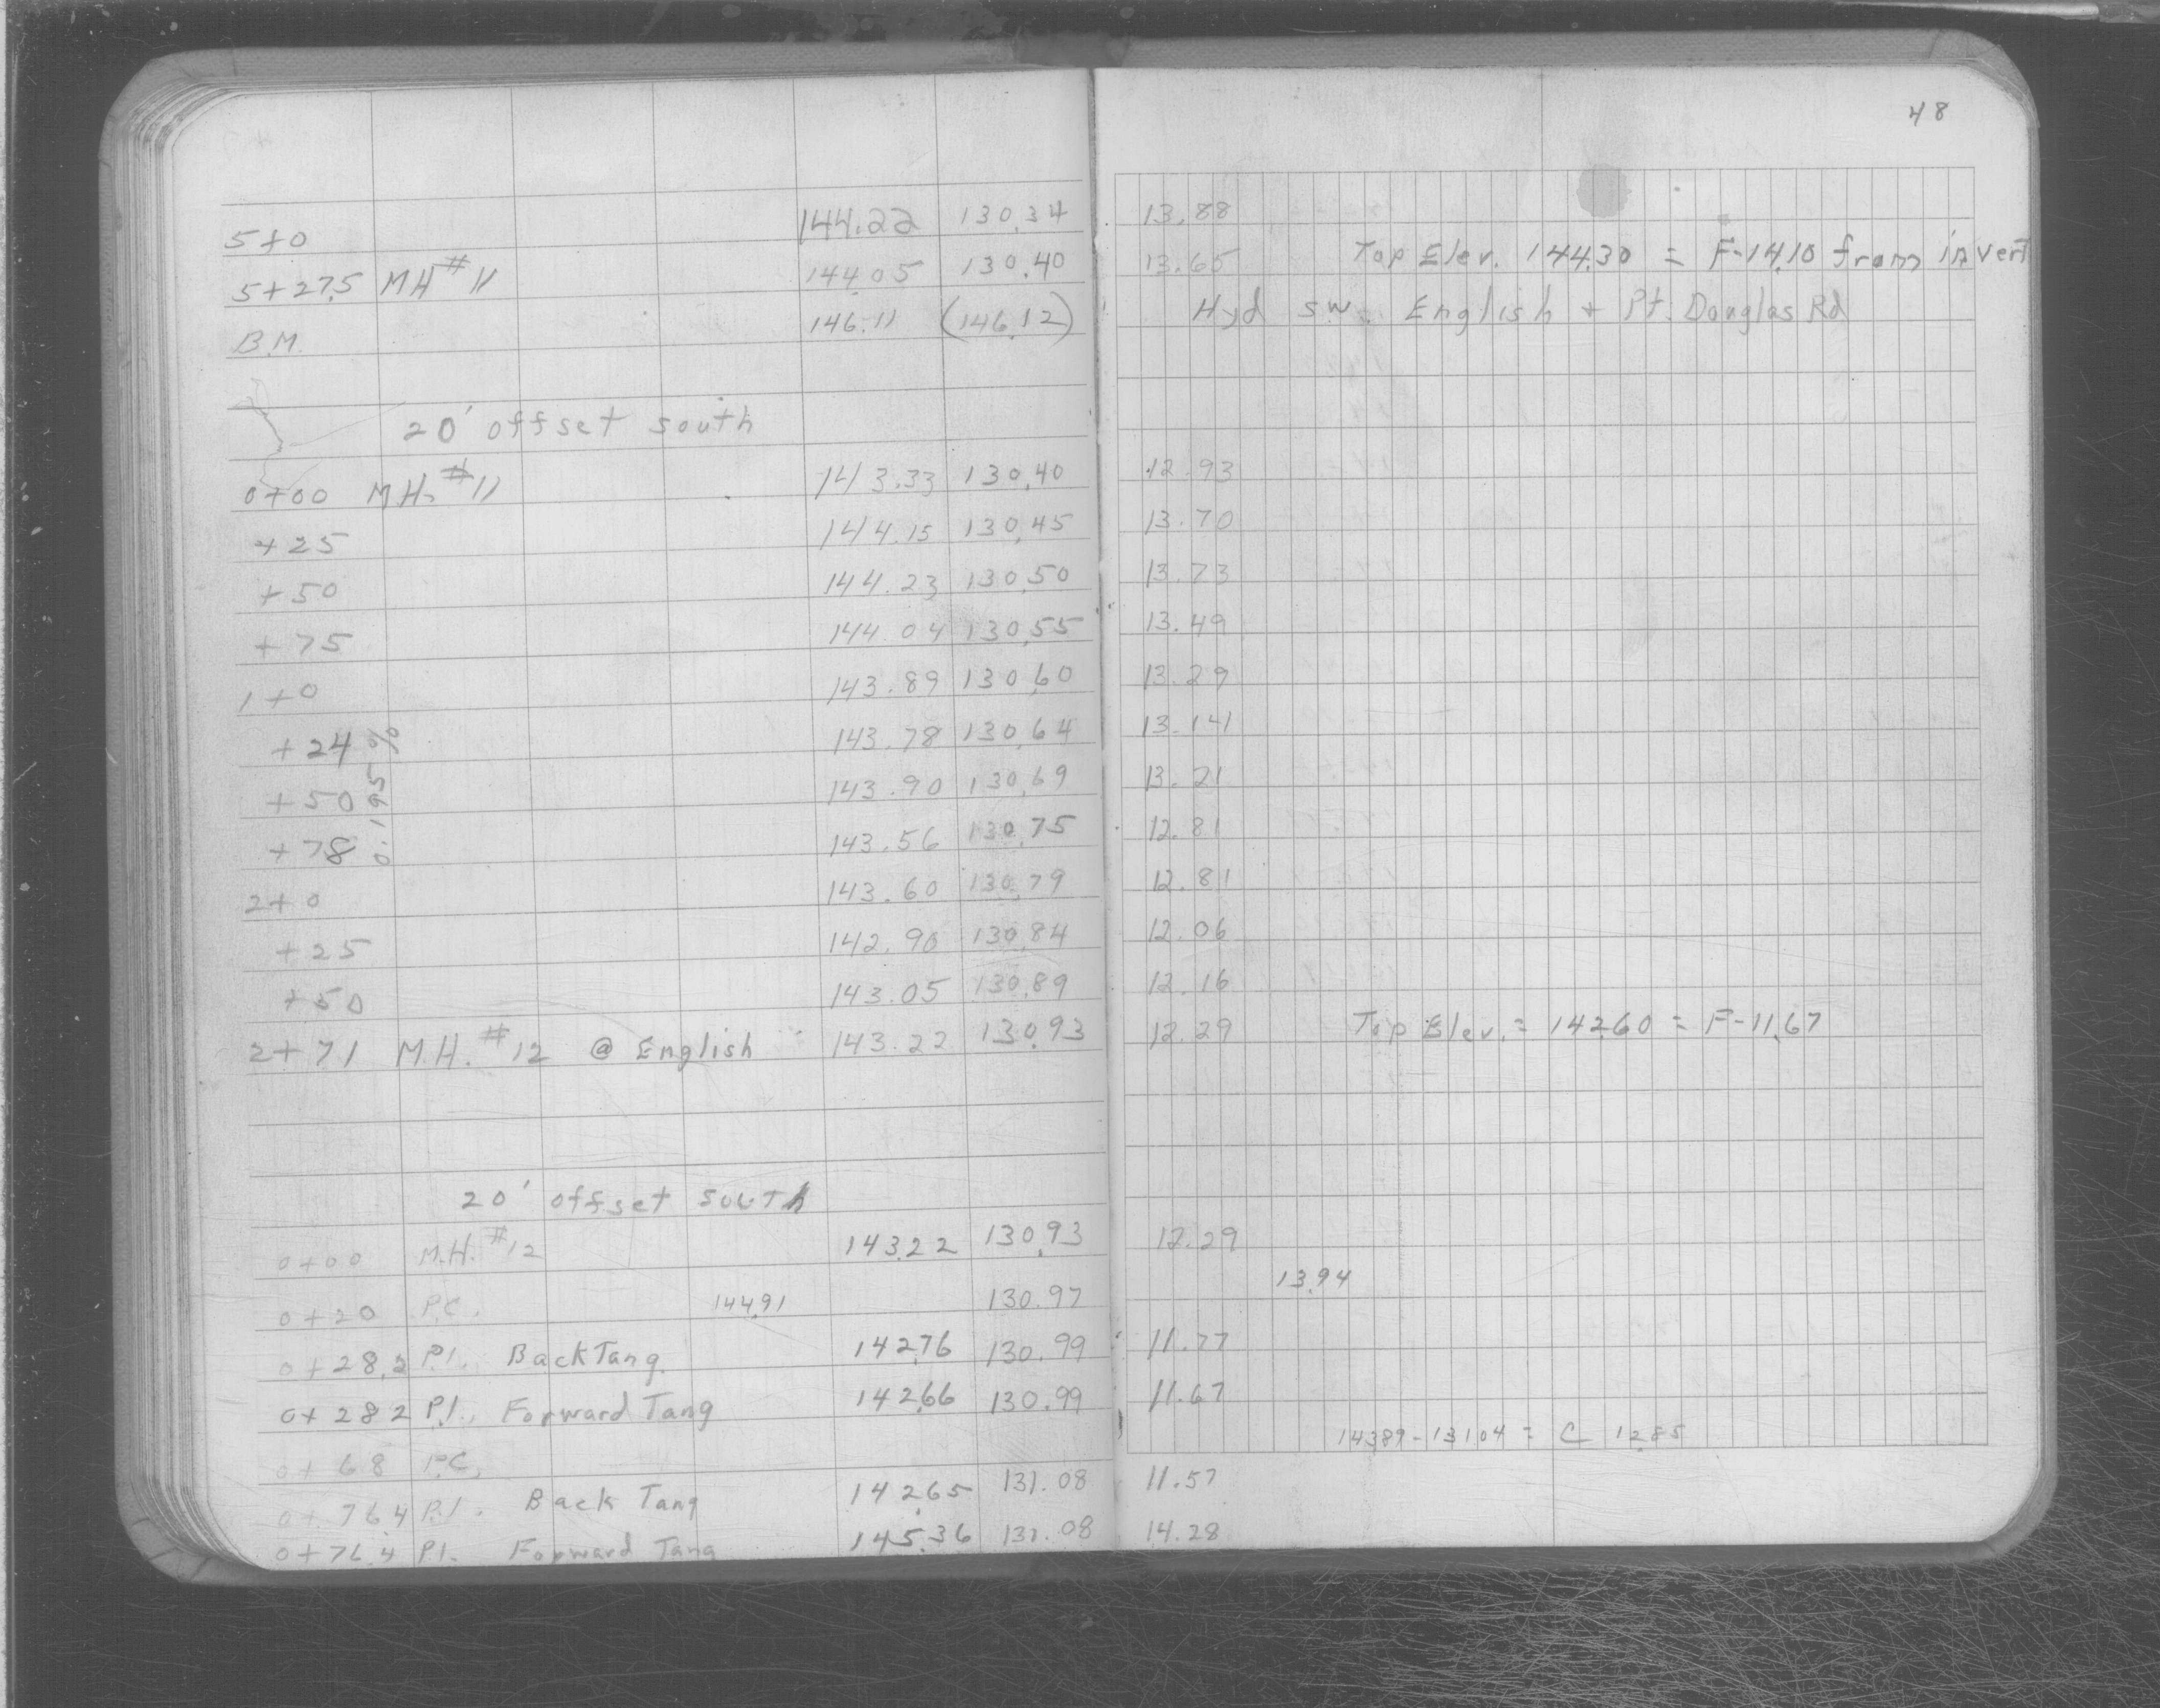 48
5+0 144.22 130.34 13.88
5+27.5 M.H.#11 144.05 130.40 13.65 Top Elev. 144.30 = F-14.10 from invert
B.M. 146.11 (146.12) Hyd SW. English + Pt. Douglas Rd
20' offset south
0+00 M.H. #11 143.33 130.40 12.93
+25 144.15 130.45 13.70
+50 144.23 130.50 13.73
+75 144.04 130.55 13.49
1+0 143.89 130.60 13.29
+24 143.78 130.64 13.14
+50 143.90 130.69 13.21
+78 143.56 130.75 12.81
0.195%
2+0 143.60 130.79 12.81
+25 142.90 130.84 12.06
+50 143.05 130.89 12.16
2+71 M.H. #12 @ English 143.22 130.93 12.29 Top Elev. = 142.60 = F-11.67
20' offset south
0+00 M.H. #12 143.22 130.93 12.29
0+20 P.C. 144.91 130.97 13.94
0+28.2 P.I. Back Tang. 142.76 130.99 11.77
0+28.2 P.I. Forward Tang 142.66 130.99 11.67
0+68 P.C. 143.89-131.04 = C 12.85
0+76.4 P.I. Back Tang 142.65 131.08 11.57
0+76.4 P.I. Forward Tang 145.36 131.08 14.28